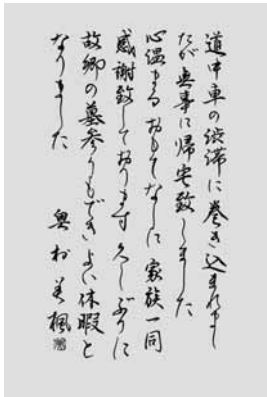 道中車の渋滞に巻き込まれまし
たが無事に帰宅致しました
心温まるおもてなしに家族一同
感謝致しております久しぶりに
故郷の墓参りもできよい休暇と
なりました
奥村美楓